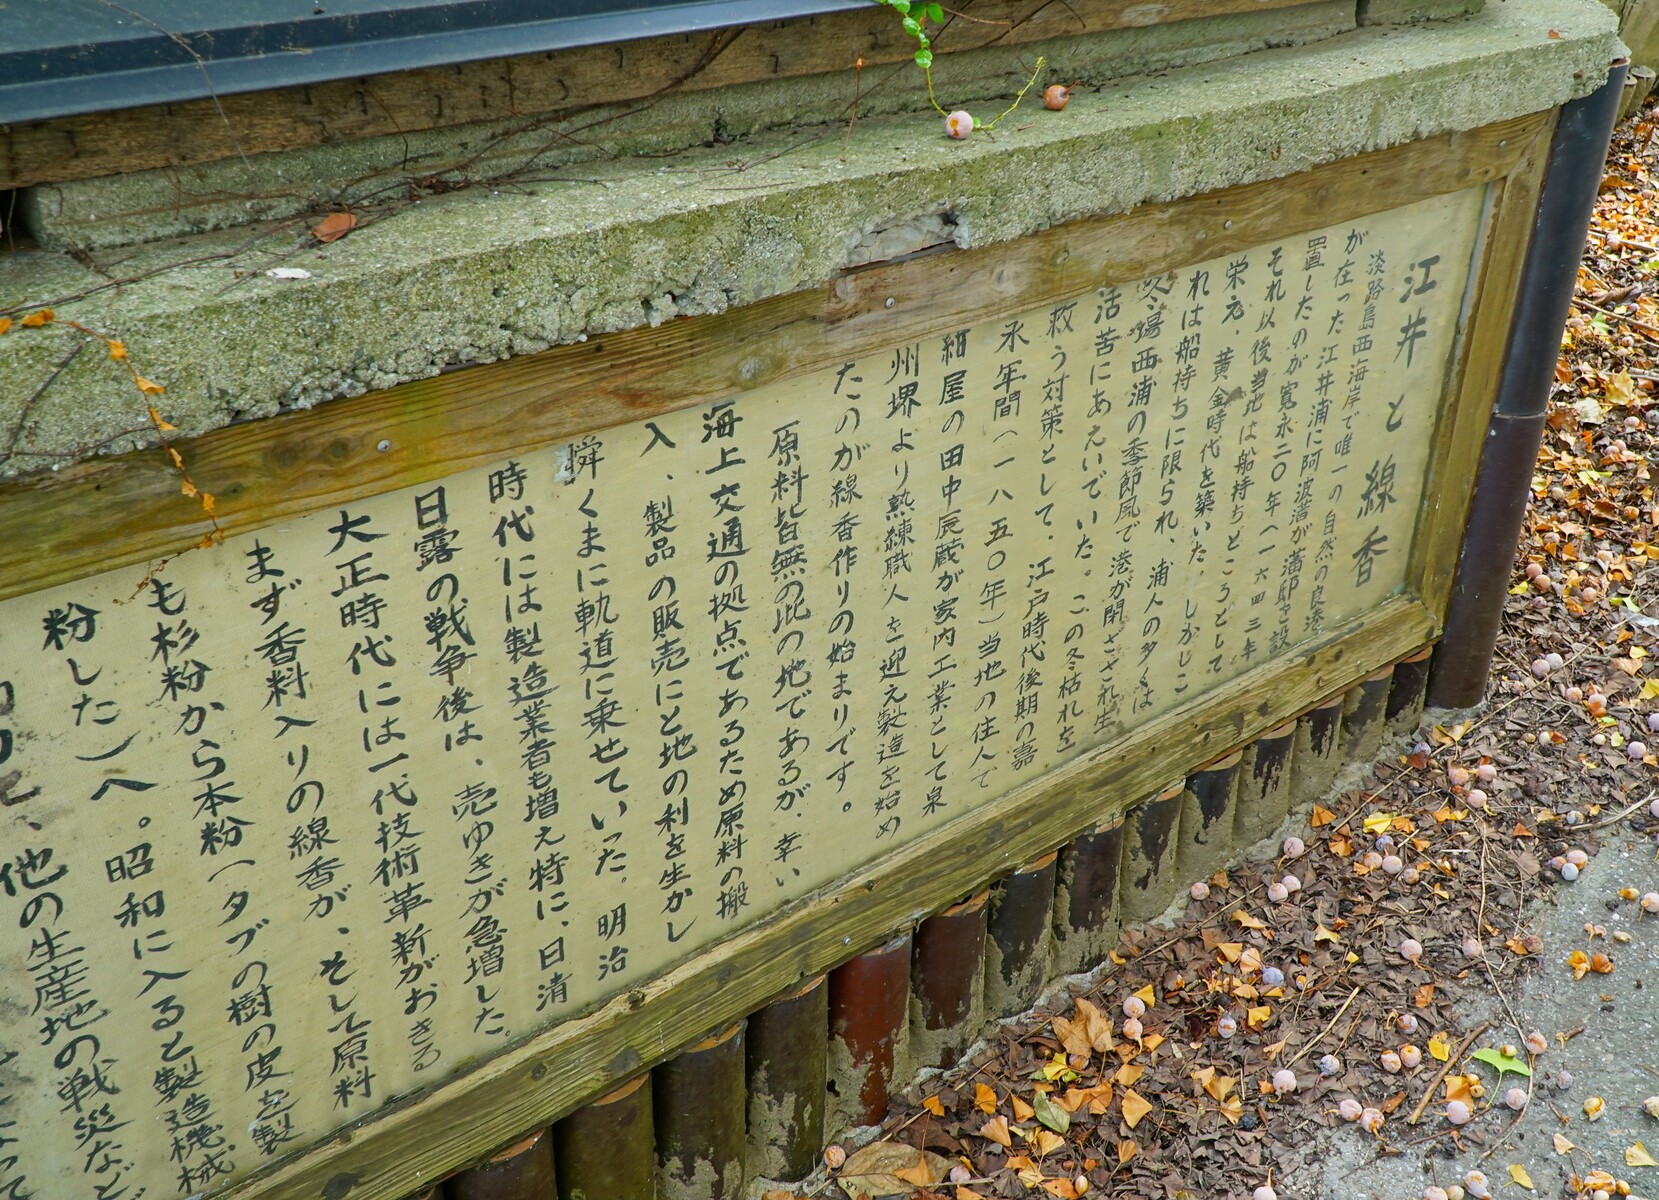 江井と線香
淡路島西海岸で唯一の自然の良港
が在った江井浦に阿波藩が藩邸を設
置したのが寛永二〇年(一六四三年
それ以後当地は船持ちどころとして
栄え、黄金時代を築いた。しかしこ
れは船持ちに限られ、浦人の多くは
冬場西浦の季節風で港が閉ざされ生
活苦にあえいでいた。この冬枯れを
救う対策として、江戸時代後期の嘉
永年間(一八五〇年)当地の住人で
紺屋の田中辰蔵が家内工業として泉
州堺より熟練職人を迎え製造を始め
たのが線香作りの始まりです。
原料皆無の此の地であるが、幸い
海上交通の拠点であるため原料の搬
入、製品の販売にと地の利を生かし
瞬くまに軌道に乗せていった。明治
時代には製造業者も増え特に、日清
日露の戦争後は、売ゆきが急増した。
大正時代には一代技術革新がおきる
まず香料入りの線香が、そして原料
も杉粉から本粉(タブの樹の皮を製
粉した)へ。昭和に入ると製造機械
他の生産地の戦災など